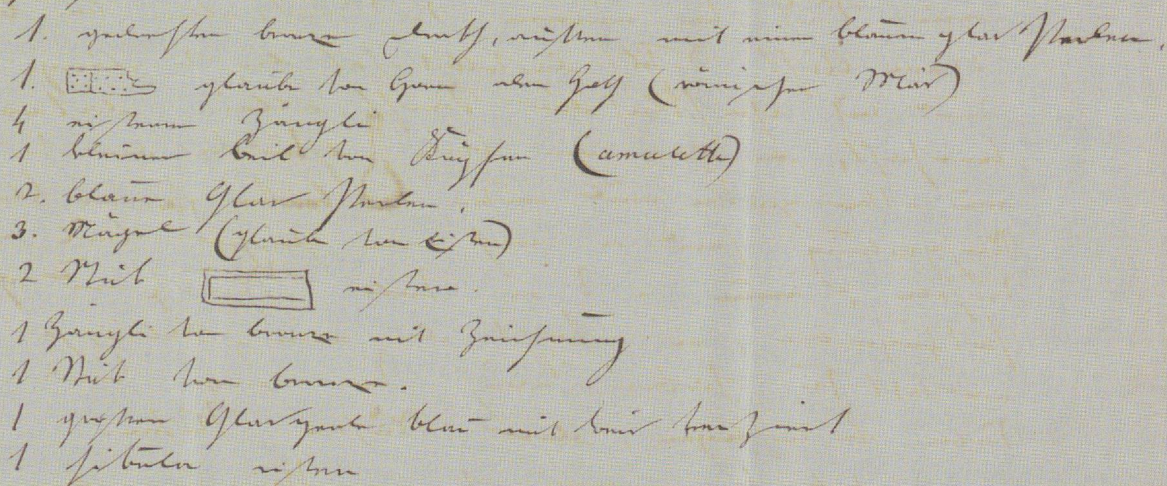 1. gedrehten bronze drath, aussen mit einen blauen glas Perlen.
1. glaube von Horn oder Holz (römischer
4 eisernen Zängli
1 kleiner beil von (amulette)
2. blaue Glas Perlen.
3. Nägel (glaube von Eisen)
2 Stük eisern.
1 Zängli von bronze mit Zeichnung
1 Stük von bronze.
1 grossen Glasperle blau mit weis verziert
1 fibula eisern